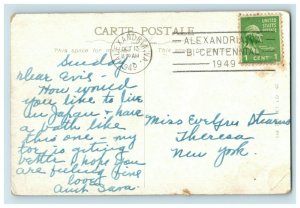 CARTE POSTALE
This space for
ALEXANDRIA, VA.
OCT 13
1949
ALEXANDRIA
BI-CENTENNIAL
1949
UNITED STATES
1 CENT 1
Sunday
Dear Evis -
How would
you like to live
in Japan & have
a bath like
this one - my
toe is getting
better hope you
are feeling fine
love
Aunt Sara.
Miss Evelyn Stearns
Theresa
New York.